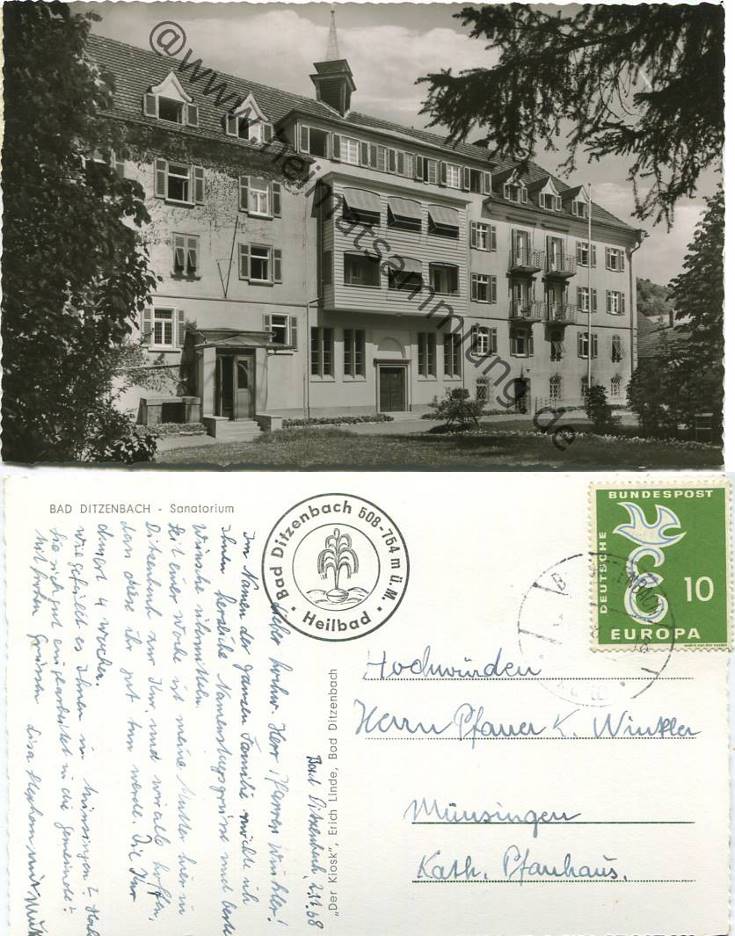 @www.heimatsammlung.de
BAD DITZENBACH - Sanatorium
Bad Ditzenbach 508-754 m ü. M.
• Heilbad •
DEUTSCHE BUNDESPOST
10
EUROPA
Hochwürden
Herrn Pfarrer K. Winkler
Münsingen
Kath. Pfarrhaus.
"Der Kiosk", Erich Linde, Bad Ditzenbach
Bad Ditzenbach,
hochw. Herr Pfarrer Winkler!
Im Namen der ganzen Familie möchte ich
Ihnen herzliche Namenstagsgrüsse und beste
Wünsche übermitteln.
Seit einer Woche ist meine Mutter hier in
Ditzenbach zur Kur und wir alle hoffen,
dass diese ihr gut tun werde. Die Kur
dauert 4 Wochen.
Wie gefällt es Ihnen in Münsingen?
Sie sich gut eingearbeitet in die Gemeinde?
Mit frohen Grüssen